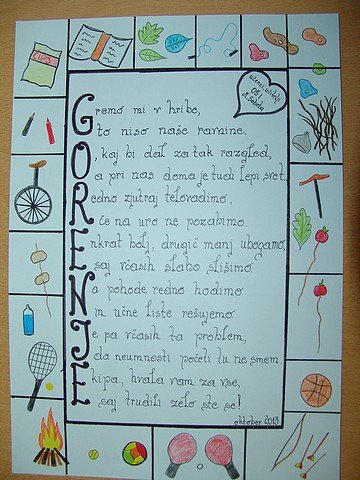 učenci, učitelji
OŠ I
M. Sobota
Gremo mi v hribe,
to niso naše ravnine.
O, kaj bi dal za tak razgled,
a pri nas doma je tudi lepi svet.
Redno zjutraj telovadimo,
če na uro ne pozabimo.
Enkrat bolj, drugič manj ubogamo,
saj včasih slabo slišimo.
Na pohode redno hodimo
in učne liste rešujemo.
Je pa včasih ta problem,
da neumnosti početi tu ne smem.
Ekipa, hvala vam za vse,
saj trudili zelo ste se!
oktober 2013